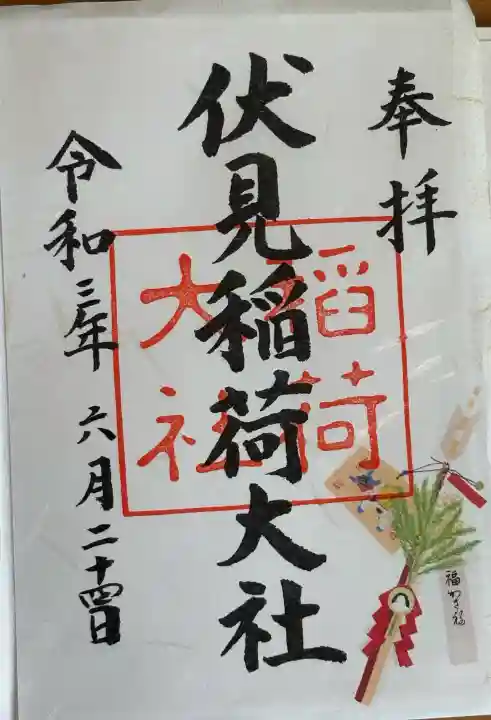 奉拝
伏見稲荷大社
稲荷
大社
令和三年六月二十四日
福かさ福